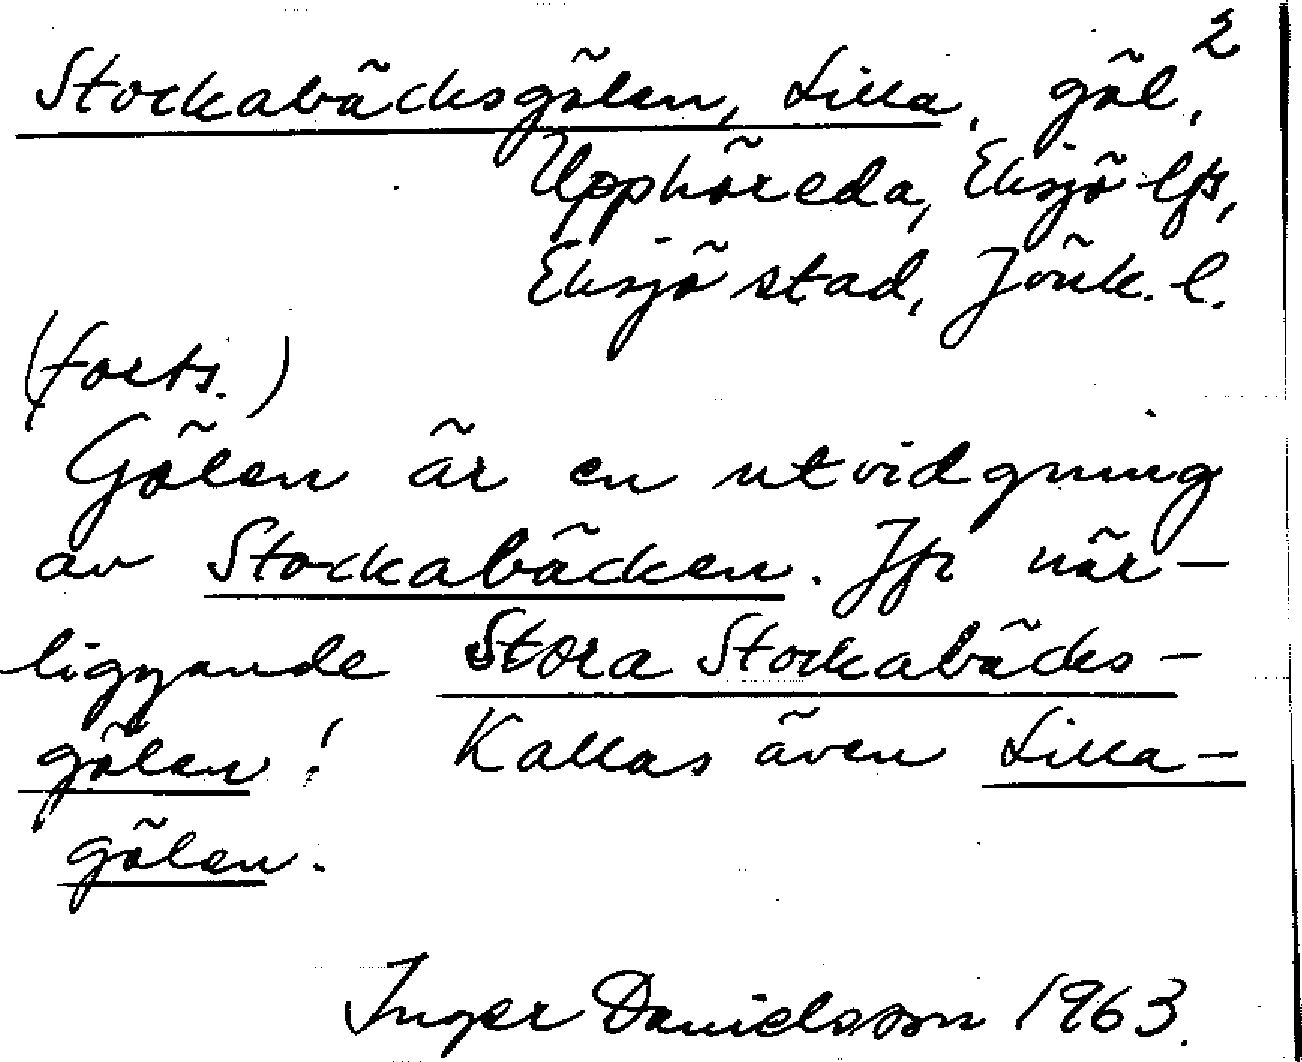 2
Stockabäcksgölen, Lilla, göl,
Upphöreda, Eksjö lfs,
Eksjö stad, Jönk. l.
(forts.)
Gölen är en utvidgning
av Stockabäcken. Jfr när-
liggande Stora Stockabäcks-
gölen! Kallas även Lilla-
gölen.
Inger Danielsson 1963.